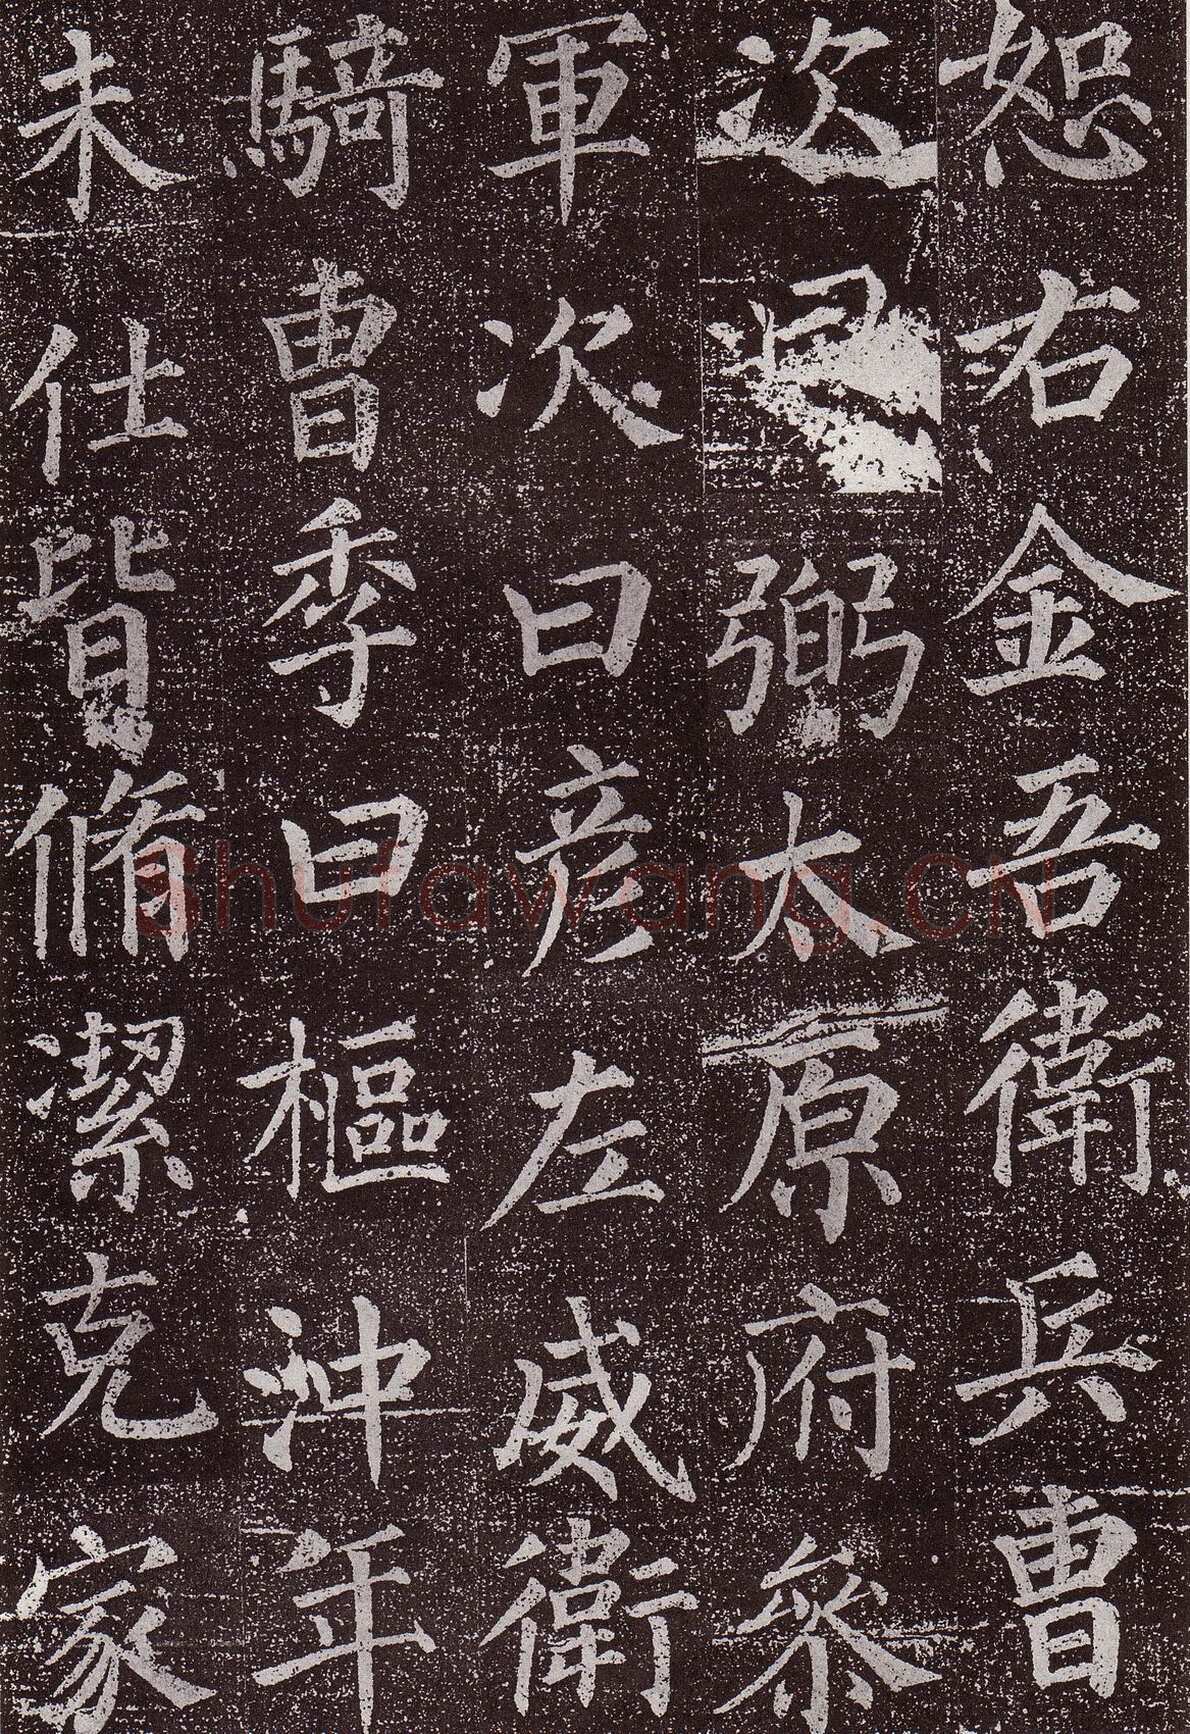 恕右金吾衛兵曹
次曰弼太原府參
軍次曰彥左威衛
騎曹季曰樞沖年
未仕皆脩潔克家
Shufawang.CN